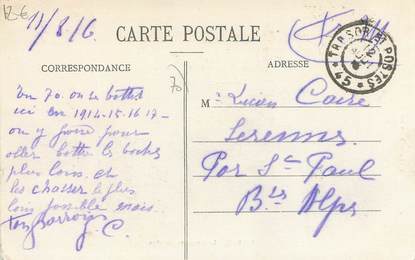 11/8/16
CARTE POSTALE
CORRESPONDANCE
ADRESSE
TRESOR ET POSTES
*5*
70
En 70. on se battit
ici en 1914-15-16-17-
on y pour
aller battre les boches
plus loin. et
les chasser le plus
loin possible mais.
Ton
C.
M. Lucien Caire
Serennes
Par St Paul
Bses Alpes